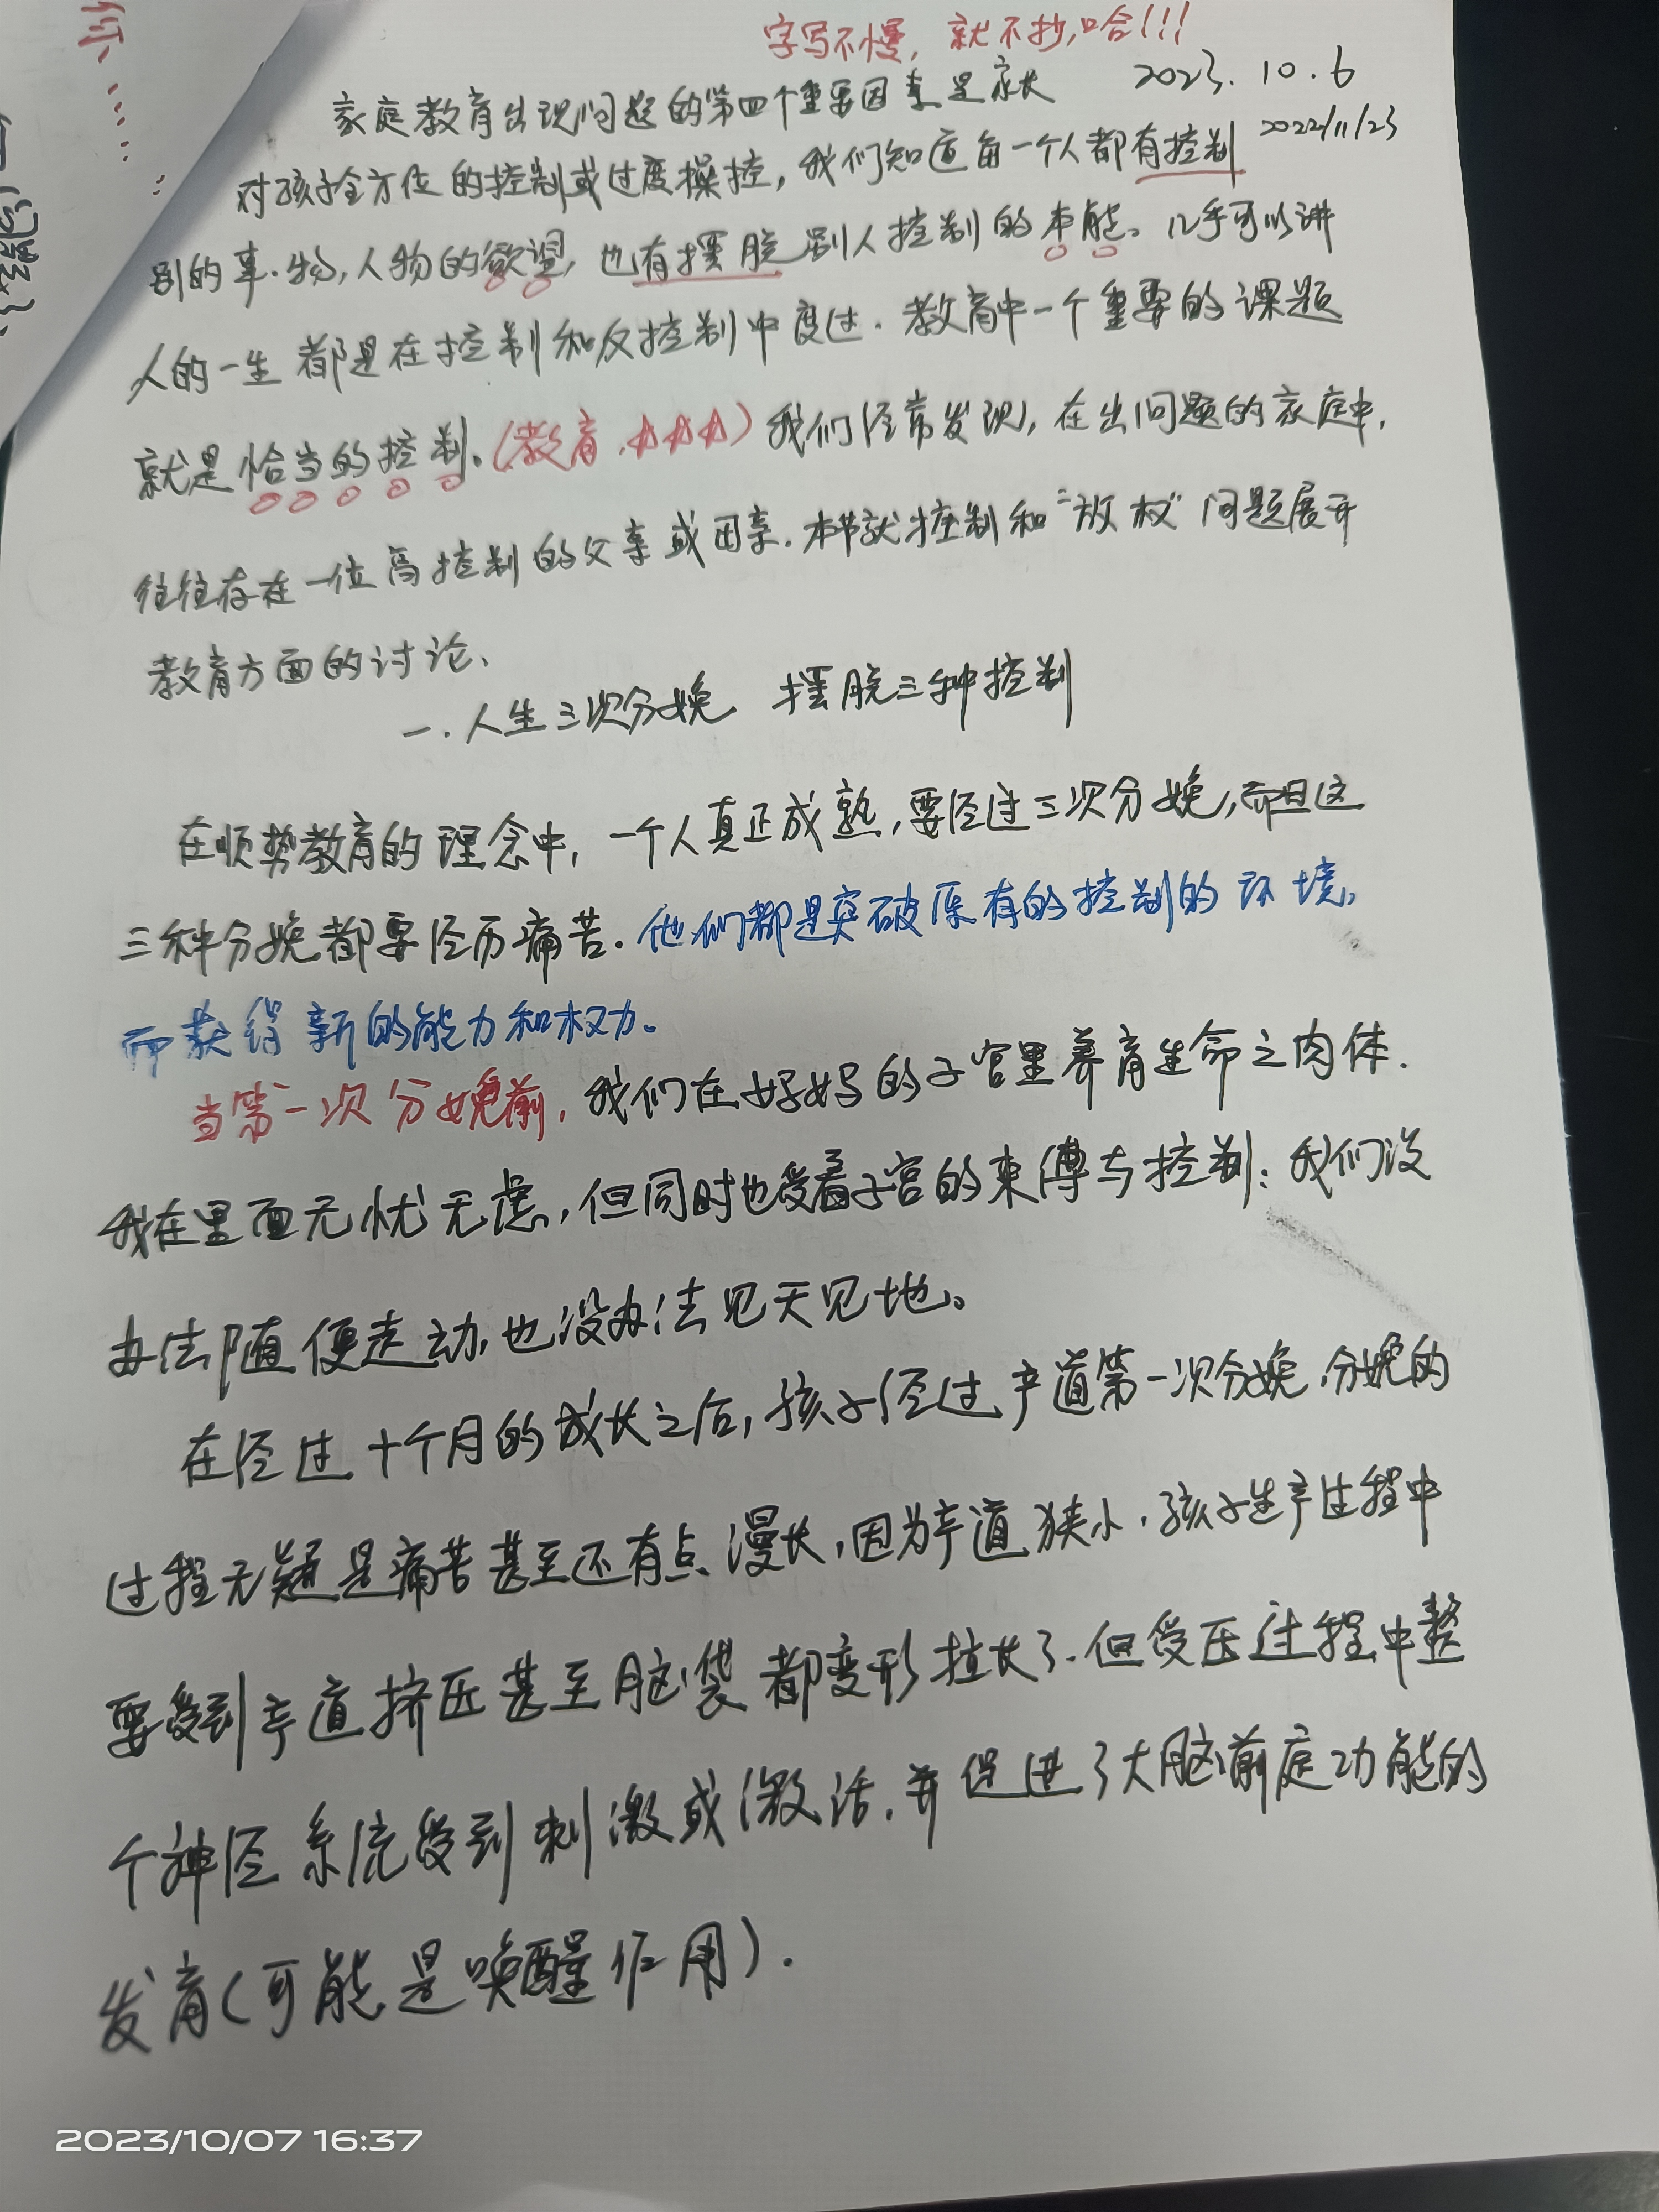 字写不慢，就不抄哈!!!
2023.10.6
家庭教育出现问题的第四个重要因素是家长
2022/11/23
对孩子全方位的控制或过度操控，我们知道每一个人都有控制
别的事.物，人物的欲望，也有摆脱别人控制的本能。几乎可以讲
人的一生都是在控制和反控制中度过.教育中一个重要的课题
就是恰当的控制。(教育.☆☆☆)我们经常发现，在出问题的家庭中，
往往存在一位高控制的父亲或母亲.本节就控制和"放权"问题展开
教育方面的讨论、
一.人生三次分娩 摆脱三种控制
在顺势教育的理念中，一个人真正成熟，要经过三次分娩，而且这
三种分娩都要经历痛苦.他们都是突破原有的控制的环境，
而获得新的能力和权力。
当第一次分娩前，我们在好妈的子宫里养育生命之肉体.
我在里面无忧无虑，但同时也受着子宫的束缚与控制：我们没
办法随便走动，也没办法见天见地。
在经过十个月的成长之后，孩子经过产道第一次分娩.分娩的
过程无疑是痛苦甚至还有点漫长，因为产道狭小.孩子生产过程中
要受到产道挤压甚至脑袋都变形拉长了.但受压过程中整
个神经系统受到刺激或激活.并促进了大脑前庭功能的
发育(可能是唤醒作用).
2023/10/07 16:37